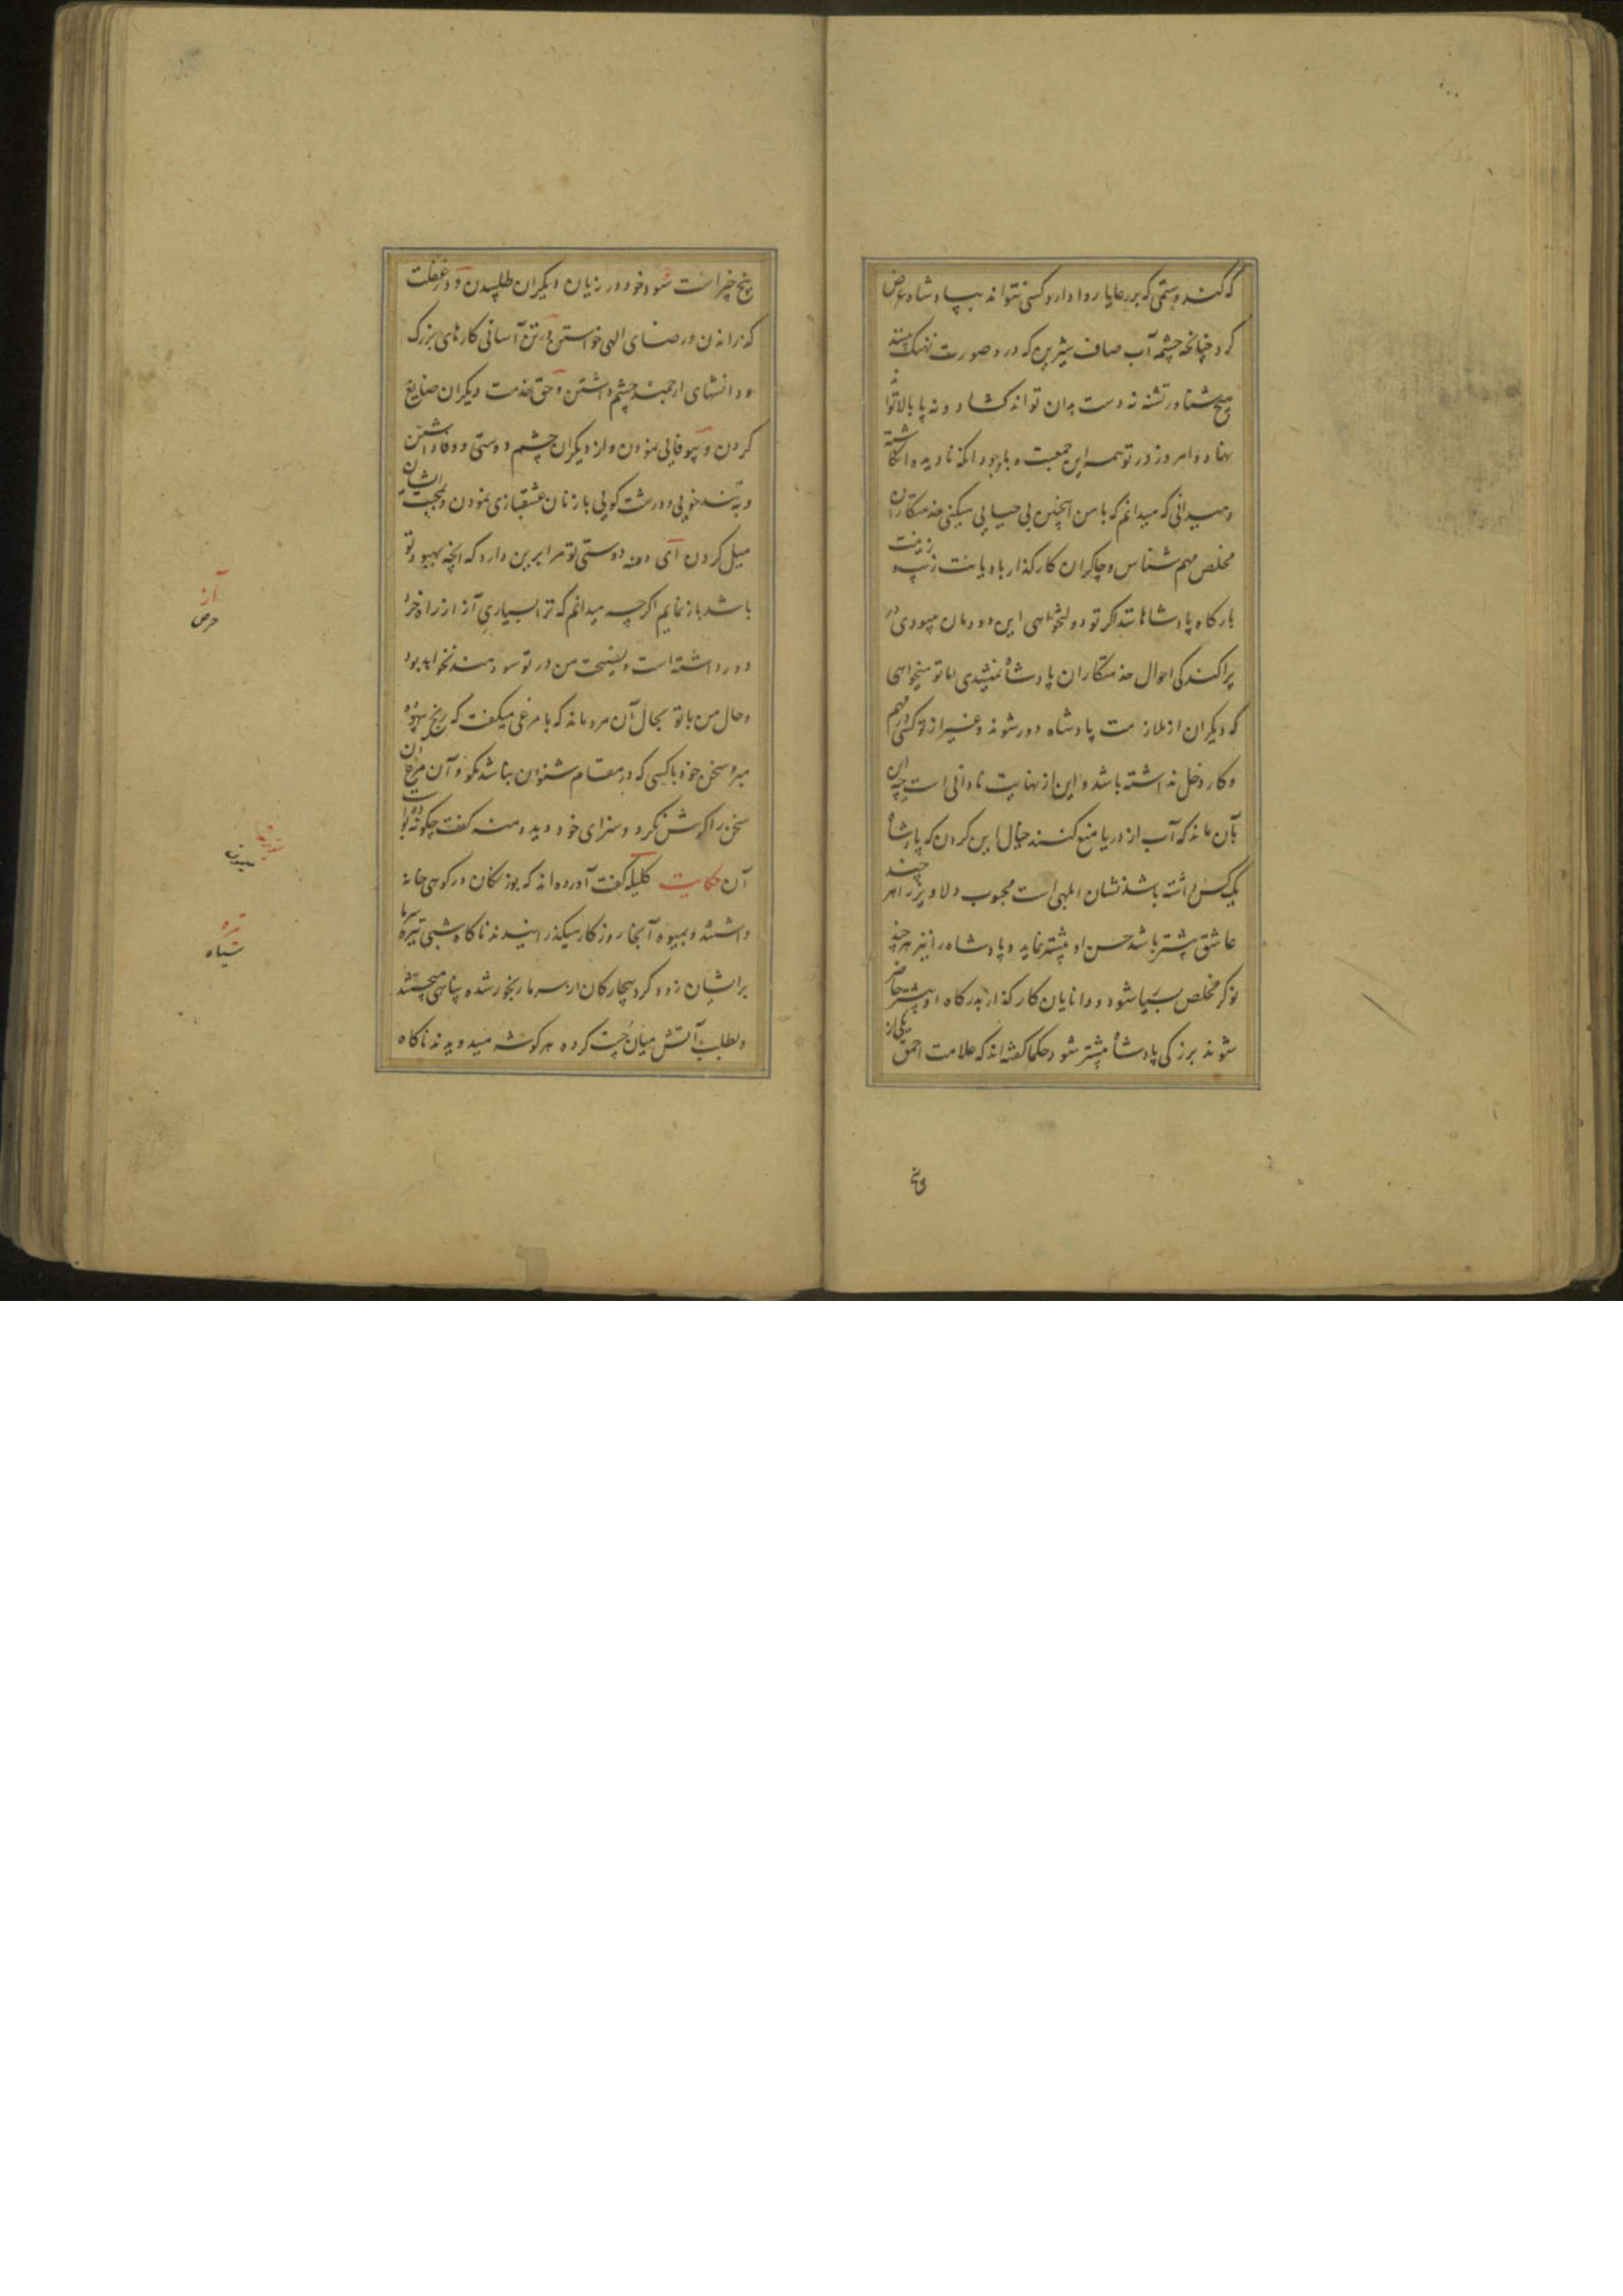 که کند و ستمی که بر رعایا روا دارد کسی نتواند بپادشاه عرض
کرد چنانچه چشمه آب صاف شیرین که درو صورت نهنگ بیند
هیچ شناور تشنه نه دست بدان تواند کشاد و نه پا بالا تواند
نهاد و امروز در تو همه این جمعست و باوجود آنکه نادیده انگاشته
و میدانی که میدانم که با من اینچنین بی حیایی میکنی خدمتکاران
مخلص مهم شناس و چاکران کارگذار بادیانت زیب و زینت
بارگاه پادشاهانند اگر تو دولتخواهی این دودمان میبودی در
پراکندگی احوال خدمتکاران پادشاه نمیشدی اما تو میخواهی
که دیگران از ملازمت پادشاه دور شوند و غیر از تو کسی در مهم
و کار دخل نداشته باشد و این از نهایت نادانی است چه این
بآن ماند که آب از دریا منع کنند خیال این کردن که پادشاه
یک کس داشته باشد نشان ابلهی است محبوب دلاویز را هر چند
عاشق بیشتر باشد حسن او بیشتر نماید و پادشاه را نیز هر چند
نوکر مخلص بسیار شود و دانایان کارگذار بدرگاه او بیشتر حاضر
شوند بزرگی پادشاه بیشتر شود حکما گفته اند که علامت احمق یکی از
پنج
پنج چیز است سود خود در زیان دیگران طلبیدن و در غفلت
گذرانیدن و رضای الهی خواستن و در تن آسانی کارهای بزرگ
و دانشهای ارجمند چشم داشتن و حق خدمت دیگران ضایع
کردن و بیوفایی نمودن و از دیگران چشم دوستی و وفا داشتن
و به تند خویی و درشت گویی با زنان عشقبازی نمودن و بمحبت ایشان
میل کردن ای دمنه دوستی تو مرا برین دارد که آنچه بهبود تو
باشد باز نمایم اگرچه میدانم که ترا بسیاری آز از راه خرد
دور داشته است و نصیحت من در تو سودمند نخواهد بود
و حال من با تو بحال آن مرد ماند که با مرغی میگفت که رنج بیهوده
مبر و سخن خود با کسی که در مقام شنودن نباشد مگو و آن مرغ آن
سخن را گوش نکرد و سزای خود دید دمنه گفت چگونه بوده است
آن حکایت کلیله گفت آورده اند که بوزنگان در کوهی خانه
داشتند و بمیوه آنجا روزگار میگذرانیدند ناگاه شبی تیره سرما
برایشان زور کرد بیچارگان از سرما رنجور شده پناهی میجستند
و بطلب آتش میان چست کرده هر گوشه میدویدند ناگاه
آز
حرص
تیره
سیاه